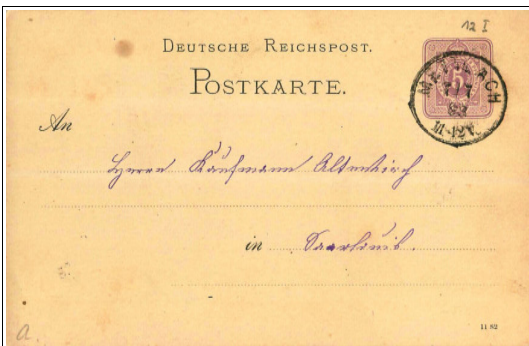 12 I
DEUTSCHE REICHSPOST.
POSTKARTE.
5
11-12V.
An
Herrn Kaufmann Altenkirch
in Saarlouis.
a.
11 82